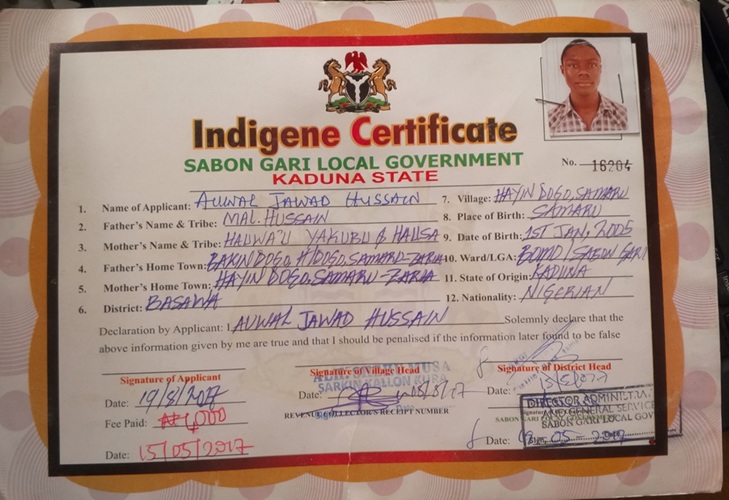 Indigene Certificate
SABON GARI LOCAL GOVERNMENT
KADUNA STATE
No. 16204
1. Name of Applicant: AUWAL JAWAD HUSSAIN
2. Father's Name & Tribe: MAL. HUSSAIN
3. Mother's Name & Tribe: HAUWA'U YAKUBU & HAUSA
4. Father's Home Town: SAMARU-ZARIA
5. Mother's Home Town: HAYIN DOGO, SAMARU-ZARIA
6. District: BASAWA
7. Village: HAYIN DOGO, SAMARU
8. Place of Birth: SAMARU
9. Date of Birth: 1ST JAN, 2005
10. Ward/LGA: BOMO/SABON GARI
11. State of Origin: KADUNA
12. Nationality: NIGERIAN
Declaration by Applicant: I, AUWAL JAWAD HUSSAIN Solemnly declare that the
above information given by me are true and that I should be penalised if the information later found to be false
Signature of Applicant
Date:
Fee Paid:
Date: 15/05/2017
Signature of Village Head
SARKIN
Date:
REVENUE COLLECTOR'S RECEIPT NUMBER
Signature of District Head
DIRECTOR
GENERAL
SABON GARI LOCAL
Date: 05 2017